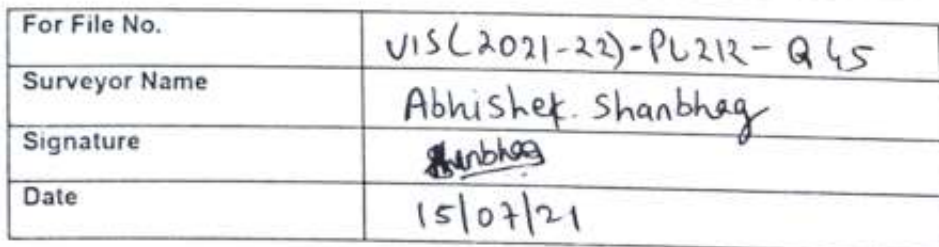 For File No. VIS(2021-22)-PL212-Q45
Surveyor Name Abhishek. Shanbhag
Signature Shanbhag
Date 15/07/21